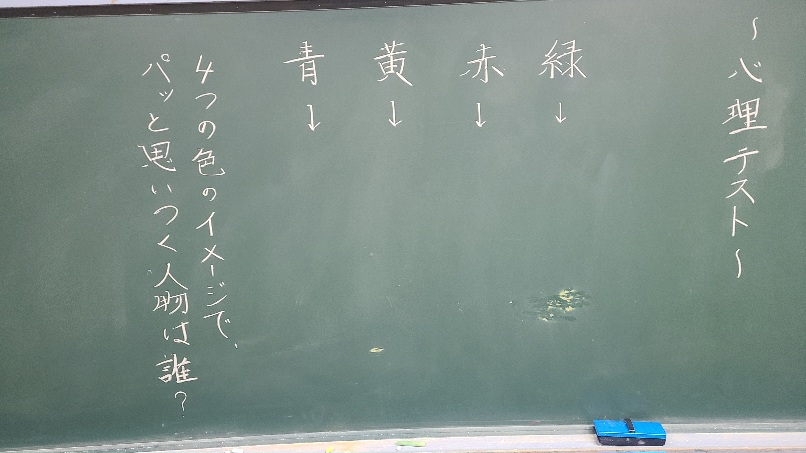 〜心理テスト〜
緑→
赤→
黄→
青→
4つの色のイメージで、
パッと思いつく人物は誰?